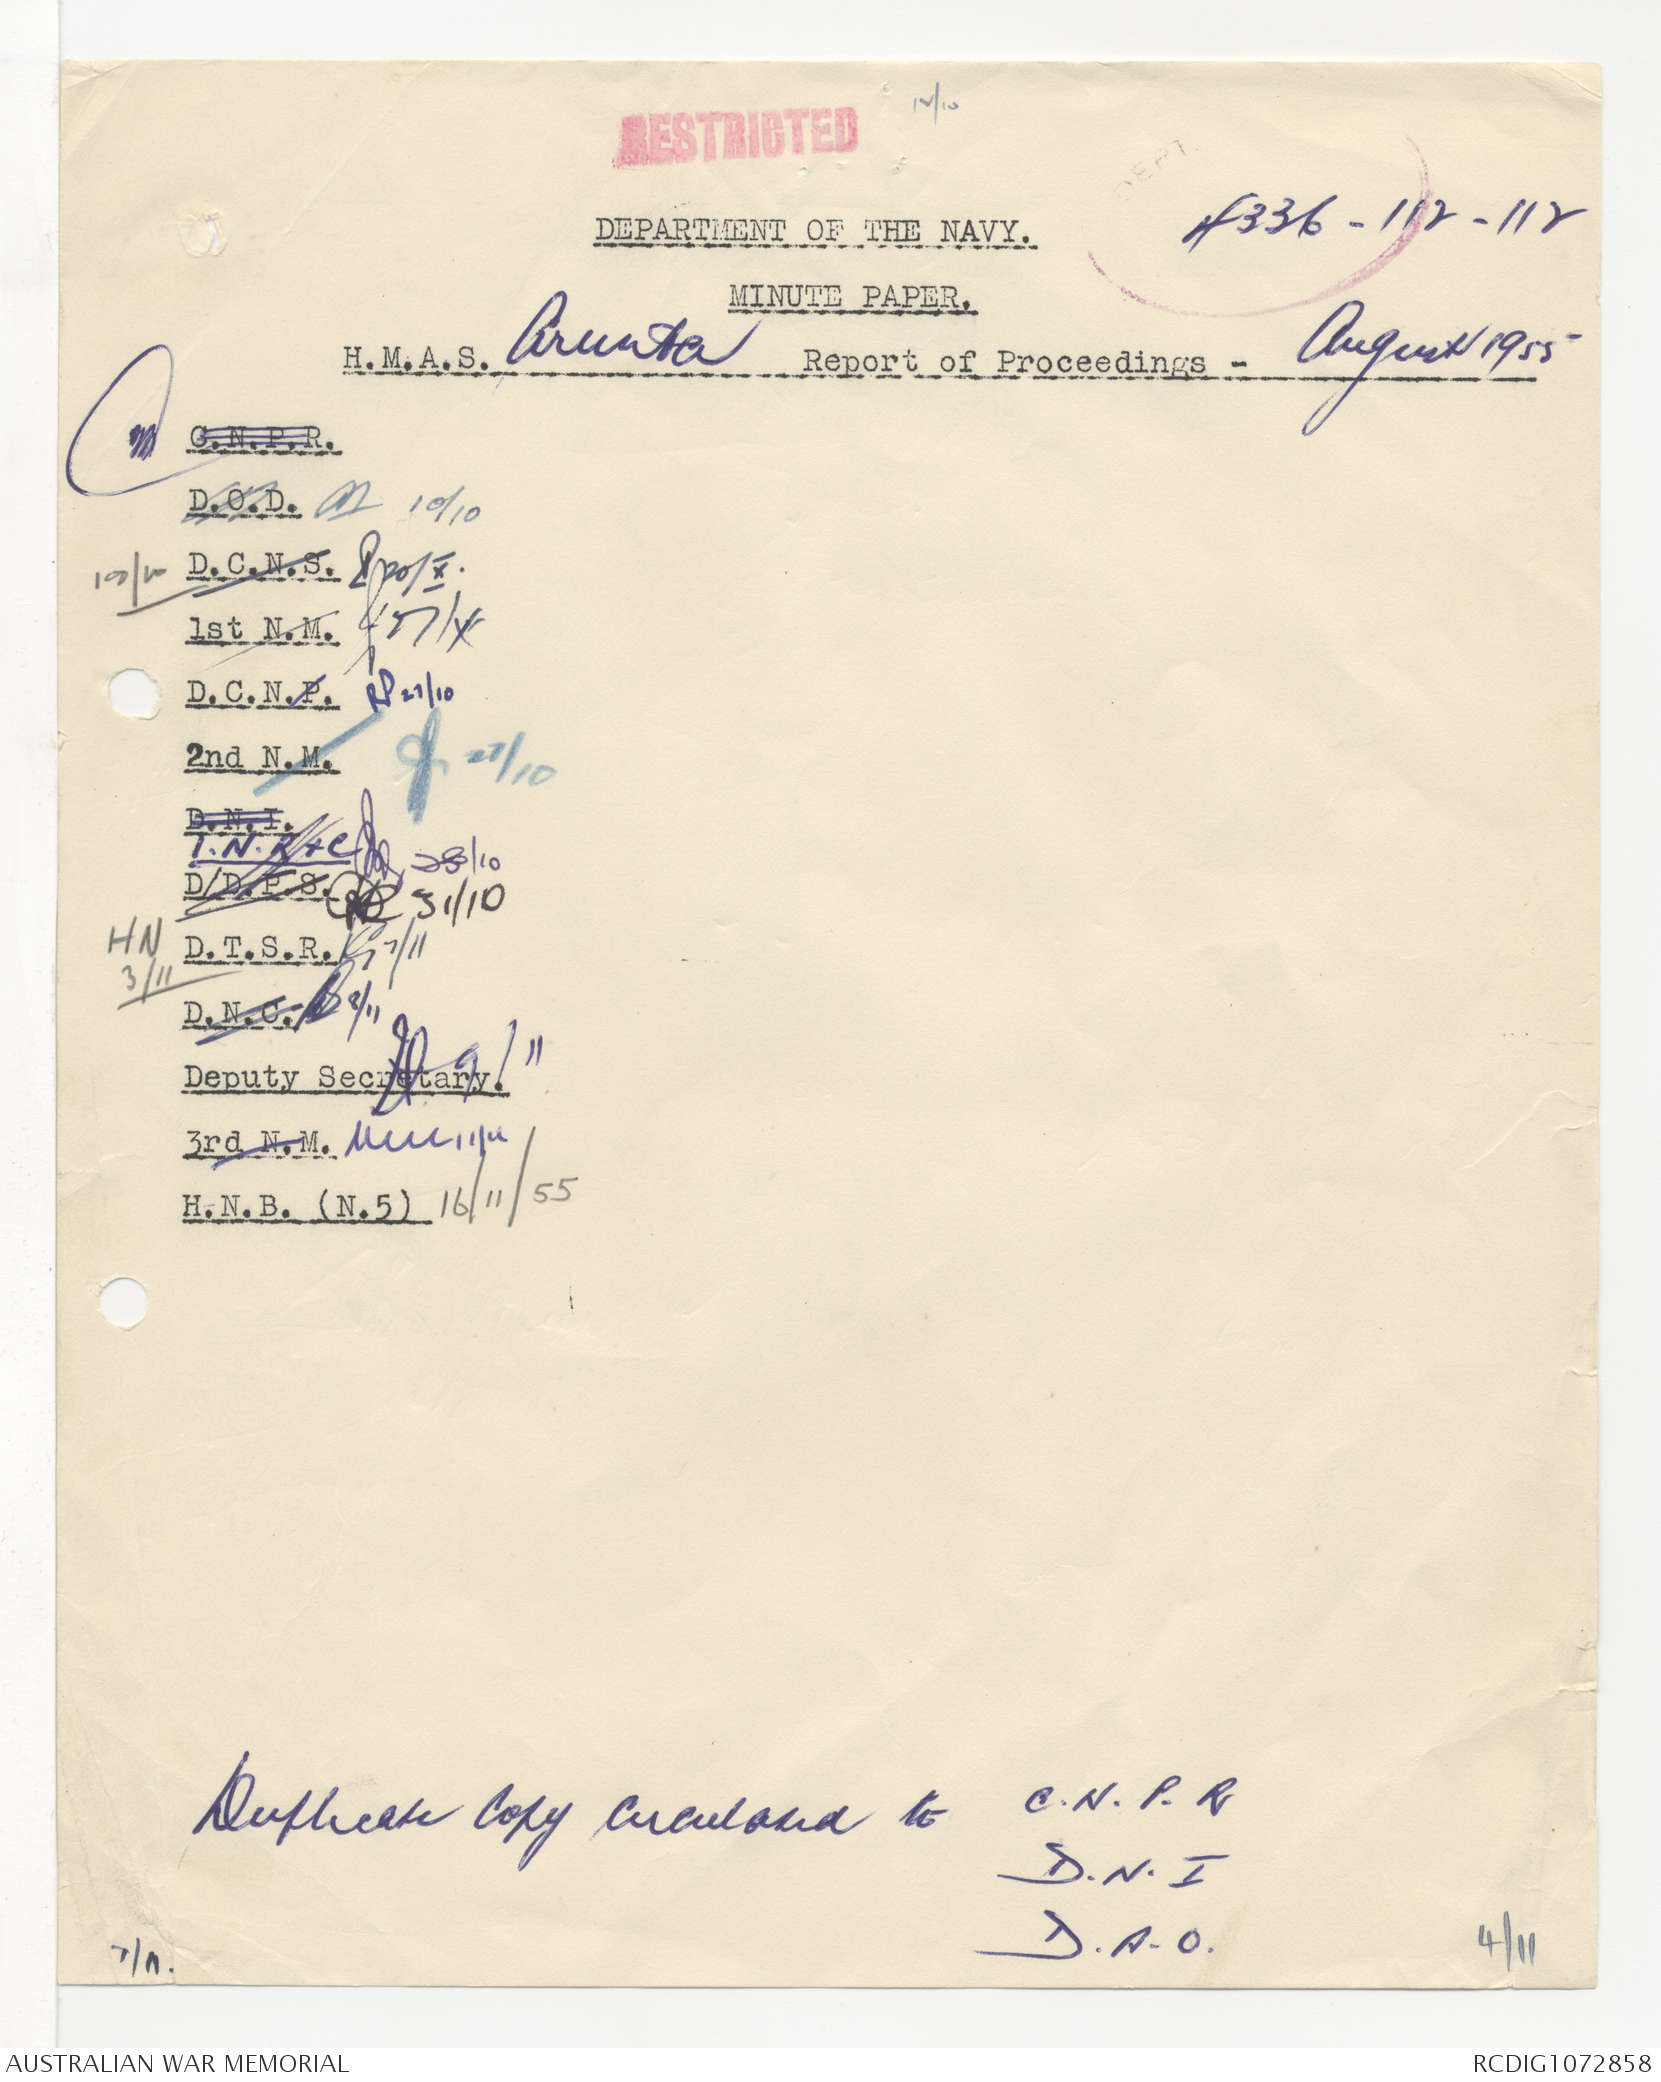 RESTRICTED
12/10
DEPT.
DEPARTMENT OF THE NAVY.
4336-112-112
MINUTE PAPER.
H.M.A.S. Arunta Report of Proceedings - August 1955
C.N.P.R.
D.O.D. 10/10
D.C.N.S. 20/X.
1st N.M. 27/X
D.C.N.P. 27/10
2nd N.M. 27/10
D.N.I.
T.N.R+C 28/10
D/D.P.S. 31/10
HN
D.T.S.R. 7/11
3/11
D.N.C. 8/11
Deputy Secretary. 9/11
3rd N.M. 11/11
H.N.B. (N.5) 16/11/55
Duplicate Copy circulated to C.N.P.R
D.N.I
D.A.O.
7/11.
4/11
AUSTRALIAN WAR MEMORIAL
RCDIG1072858